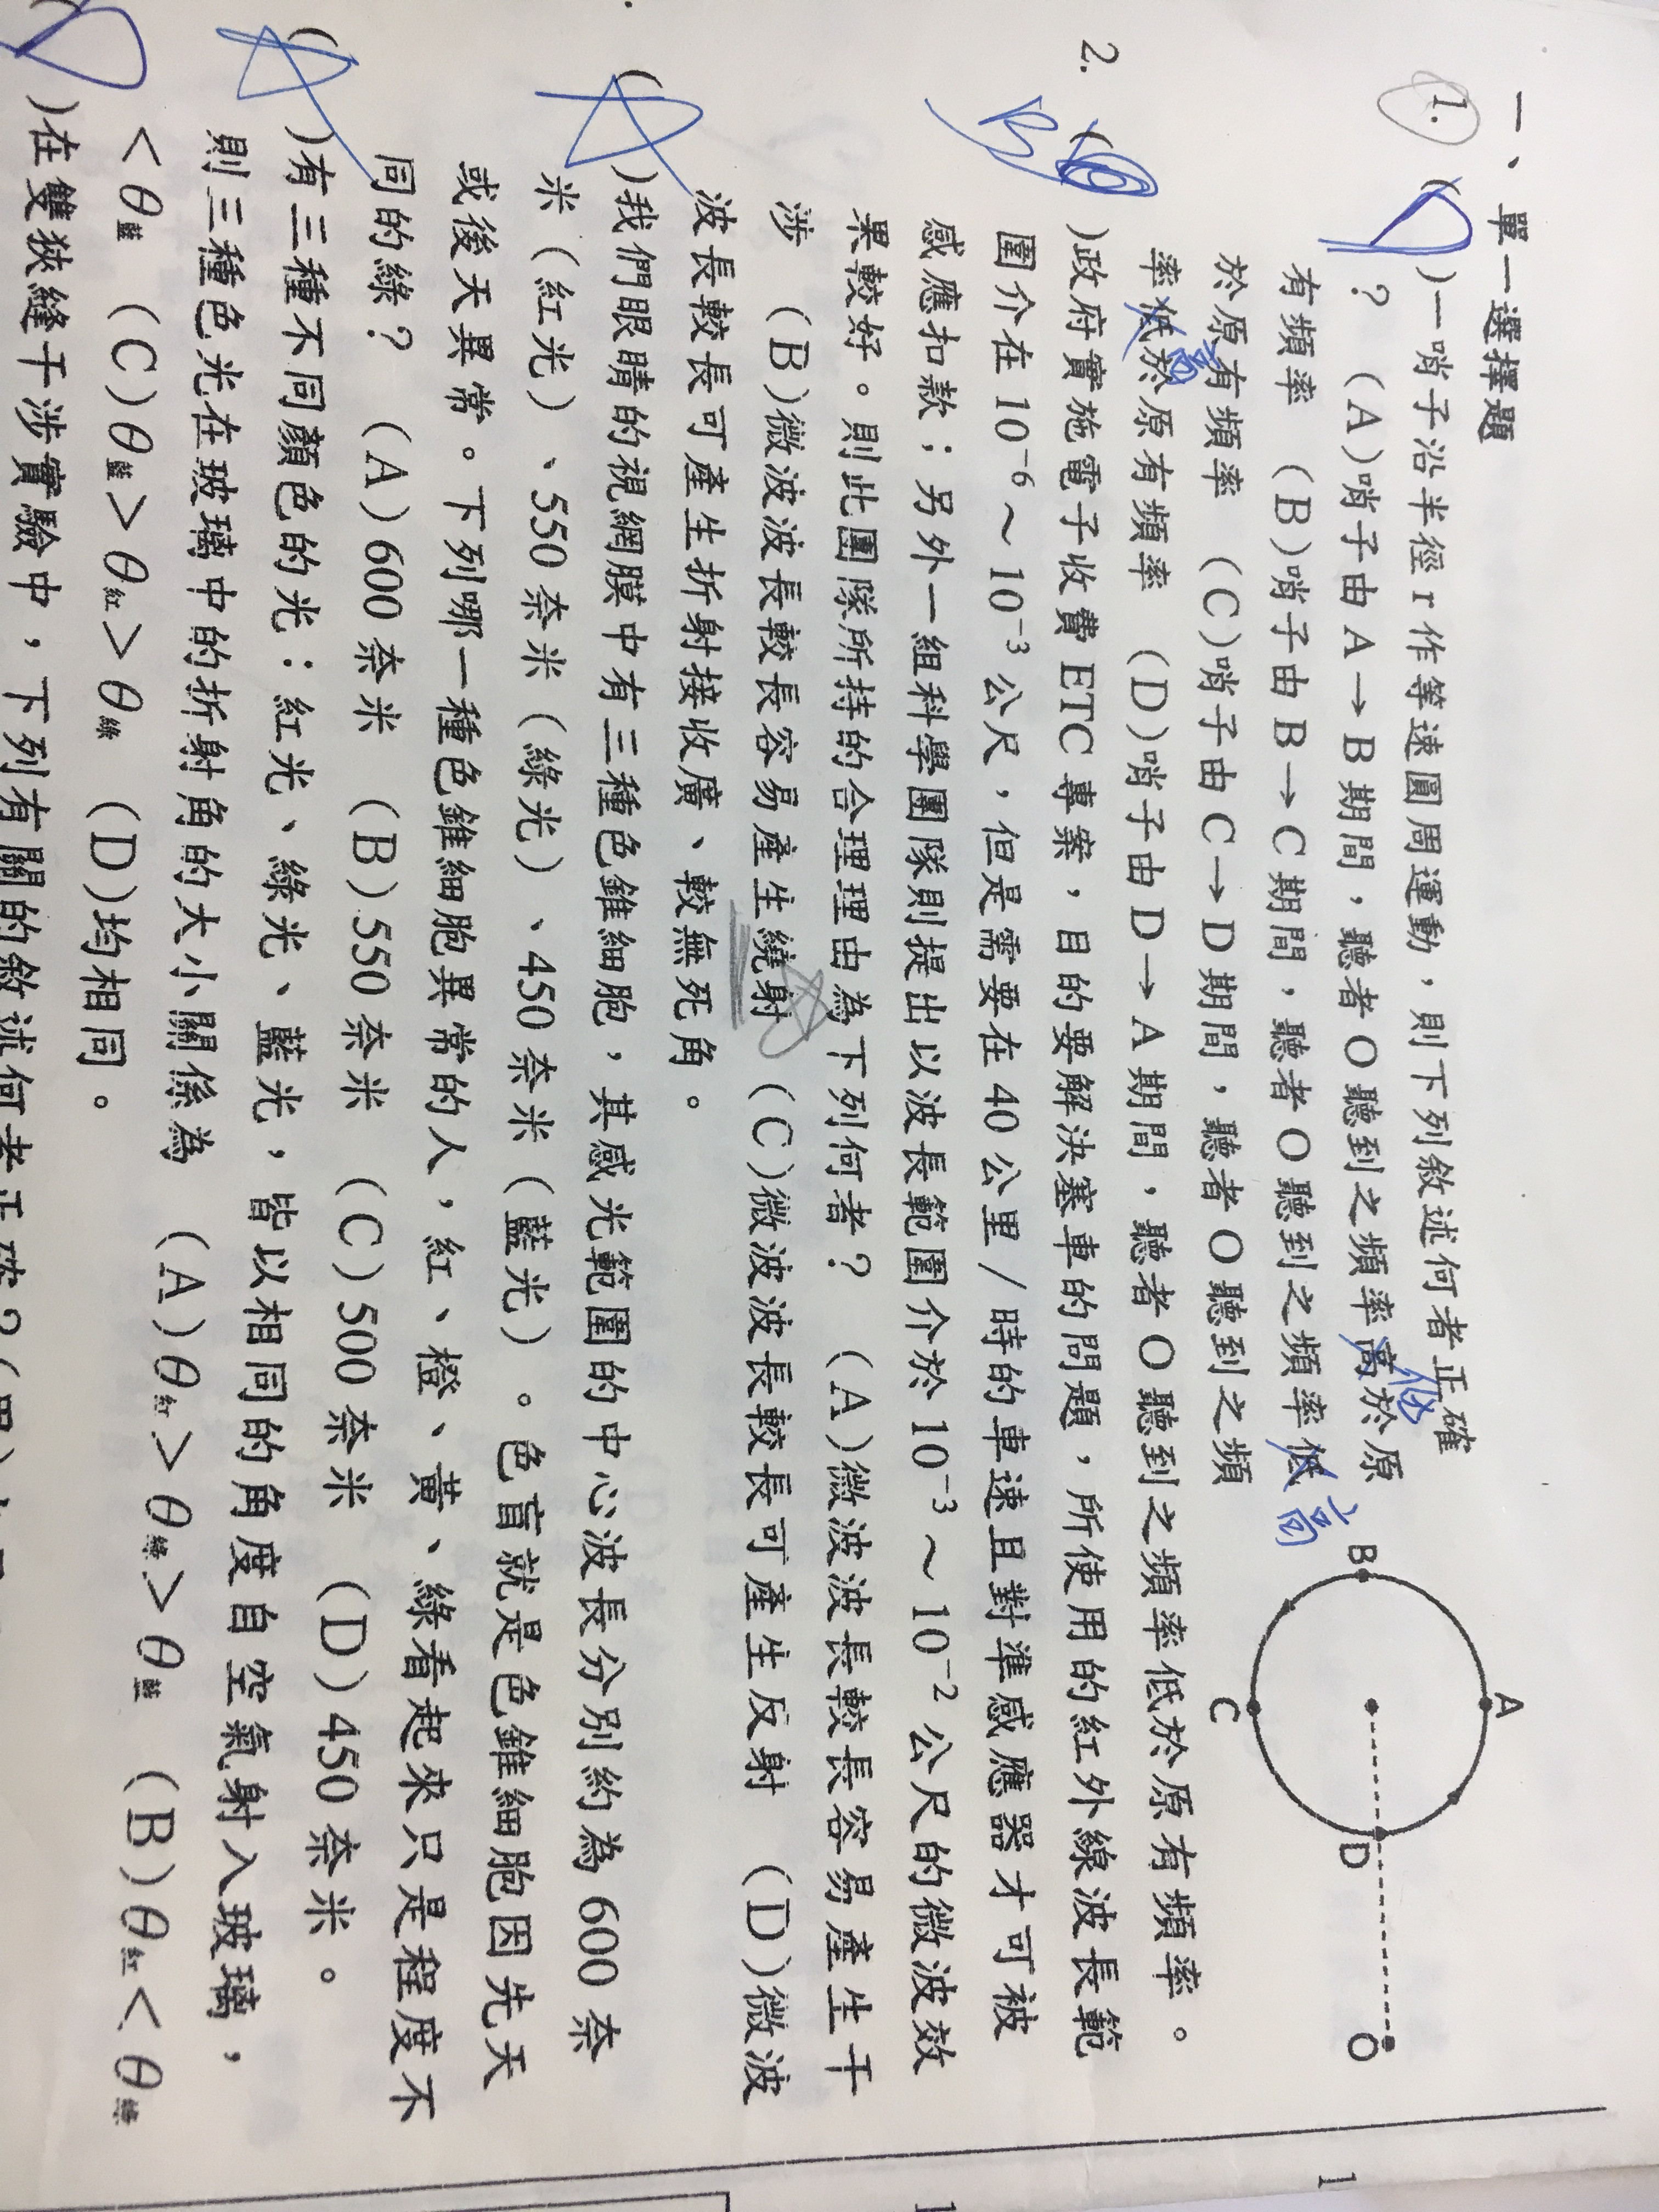 一、單一選擇題
1. (D)一哨子沿半徑r作等速圓周運動，則下列敘述何者正確
？ (A)哨子由A→B期間，聽者O聽到之頻率高於原
低
有頻率 (B)哨子由B→C期間，聽者O聽到之頻率低
高
於原有頻率 (C)哨子由C→D期間，聽者O聽到之頻
率低於原有頻率 (D)哨子由D→A期間，聽者O聽到之頻率低於原有頻率。
高
A
B
C
D
O
2. (B)政府實施電子收費ETC專案，目的要解決塞車的問題，所使用的紅外線波長範
圍介在10⁻⁶～10⁻³公尺，但是需要在40公里/時的車速且對準感應器才可被
感應扣款；另外一組科學團隊則提出以波長範圍介於10⁻³～10⁻²公尺的微波效
果較好。則此團隊所持的合理理由為下列何者？ (A)微波波長較長容易產生干
涉 (B)微波波長較長容易產生繞射 (C)微波波長較長可產生反射 (D)微波
波長較長可產生折射接收廣、較無死角。
(A)我們眼睛的視網膜中有三種色錐細胞，其感光範圍的中心波長分別約為600奈
米（紅光）、550奈米（綠光）、450奈米（藍光）。色盲就是色錐細胞因先天
或後天異常。下列哪一種色錐細胞異常的人，紅、橙、黃、綠看起來只是程度不
同的綠？ (A)600奈米 (B)550奈米 (C)500奈米 (D)450奈米。
(A)有三種不同顏色的光：紅光、綠光、藍光，皆以相同的角度自空氣射入玻璃，
則三種色光在玻璃中的折射角的大小關係為 (A)θ紅>θ綠>θ藍 (B)θ紅<θ綠
<θ藍 (C)θ藍>θ紅>θ綠 (D)均相同。
)在雙狹縫干涉實驗中，下列有關的敘述何者正確？
1